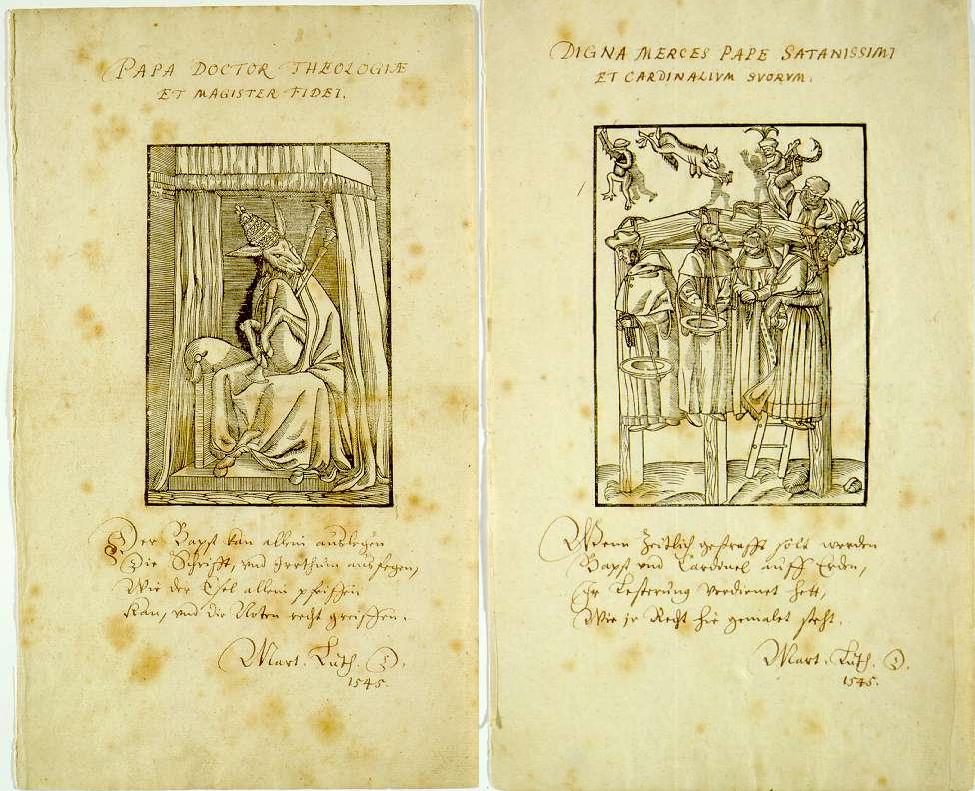 PAPA DOCTOR THEOLOGIÆ
ET MAGISTER FIDEI.
Der Bapst kan allein auslegen
Die Schrifft, vnd jrthum ausfegen,
Wie der Esel allein pfeiffen
Kan, vnd die Noten recht greiffen.
Mart. Luth. D.
1545.
DIGNA MERCES PAPE SATANISSIMI
ET CARDINALIVM SVORVM.
Wenn Zeitlich gestrafft solt werden
Bapst vnd Cardinel auff Erden,
Jr Lesterung verdienet hett,
Wie jr Recht hie gemalet steht.
Mart. Luth. D.
1545.